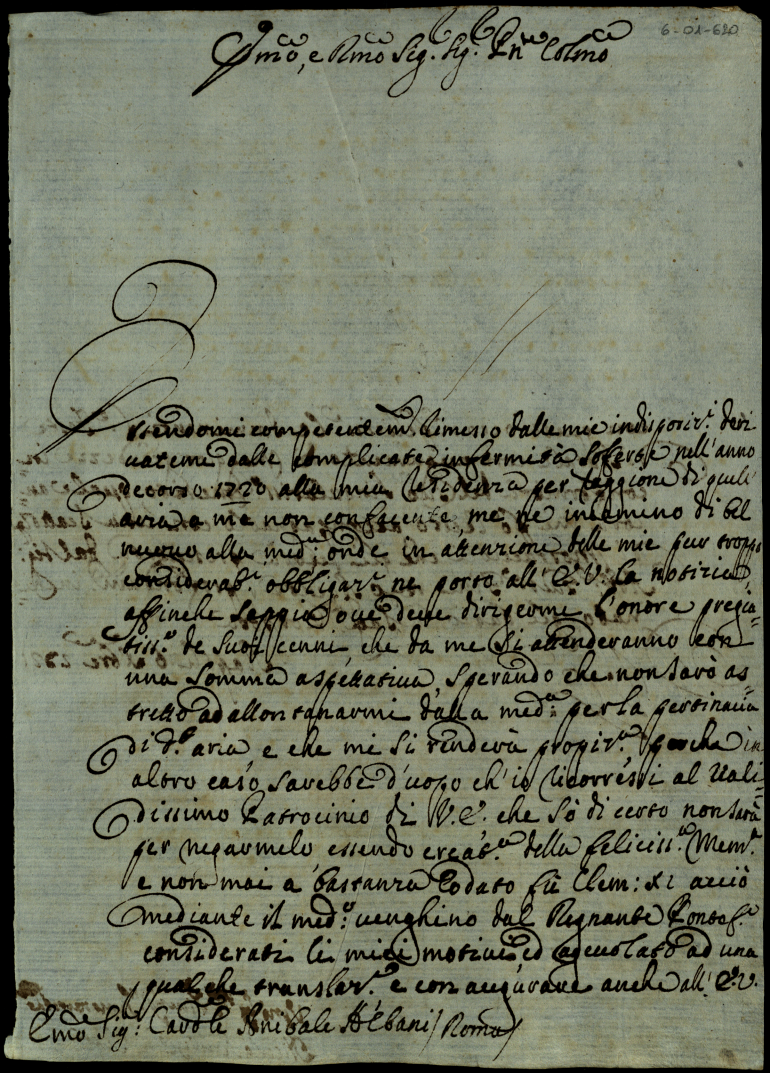 6-01-620
Emo, e Rmo Sig. Sig. Pne Colmo
Essendomi competentem.e rimesso dalle mie indisposiz.i deri
vatemi dalle complicate infermità sofferte nell'anno
decorso 1720 alla mia Residenza per caggione di quell'
aria a me non confacente, me ne incamino di bel
nuovo alla med.ma: onde in attenzione delle mie pur troppo
considerab.i obbligaz.i ne porto all'E.V. la notizia,
affinche sappia ove deve dirigermi l'onore pregia=
tiss.o de suoi cenni, che da me si attenderanno con
una somma aspettativa, sperando che non sarò as
tretto ad allontanarmi dalla med.ma per la pertinacia
di d.a aria e che mi si renderà propiz.a, perche in
altro caso sarebbe d'uopo ch'io ricorressi al Vali=
dissimo Patrocinio di V.E. che sò di certo non sarà
per negarmelo essendo creat.ra della feliciss.ma Mem.a
e non mai a bastanza lodato fù Clem: XI acciò
mediante il med.o venghino dal Regnante Pontef.e
considerati li miei motivi, ed agevolato ad una
qualche translaz.e e con augurare anche all'E.V.
Emo Sig: Cardle Anibale Albani / Roma /